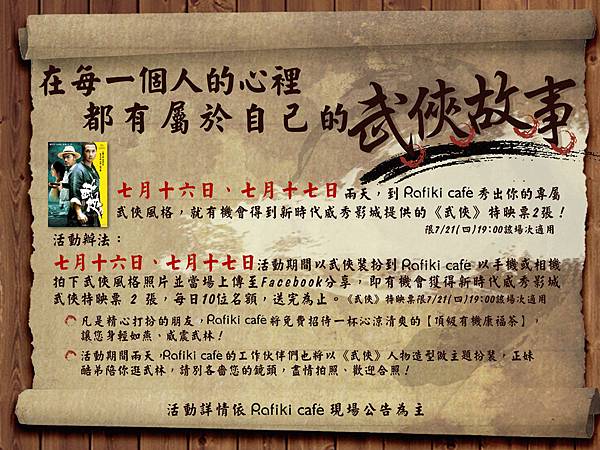 在每一個人的心裡
都有屬於自己的武俠故事
武俠
七月十六日、七月十七日兩天，到 Rafiki café 秀出你的專屬
武俠風格，就有機會得到新時代威秀影城提供的《武俠》特映票2張！
限7/21(四)19:00該場次適用
活動辦法：
七月十六日、七月十七日活動期間以武俠裝扮到 Rafiki café 以手機或相機
拍下武俠風格照片並當場上傳至Facebook分享，即有機會獲得新時代威秀影城
武俠特映票 2 張，每日10位名額，送完為止。《武俠》特映票限7/21(四)19:00該場次適用
凡是精心打扮的朋友，Rafiki café 將免費招待一杯沁涼清爽的【頂級有機康福茶】，
讓您身輕如燕、威震武林！
活動期間兩天，Rafiki café 的工作伙伴們也將以《武俠》人物造型做主題扮裝，正妹
酷弟陪你逛武林，請別吝嗇您的鏡頭，盡情拍照、歡迎合照！
活動詳情依 Rafiki café 現場公告為主